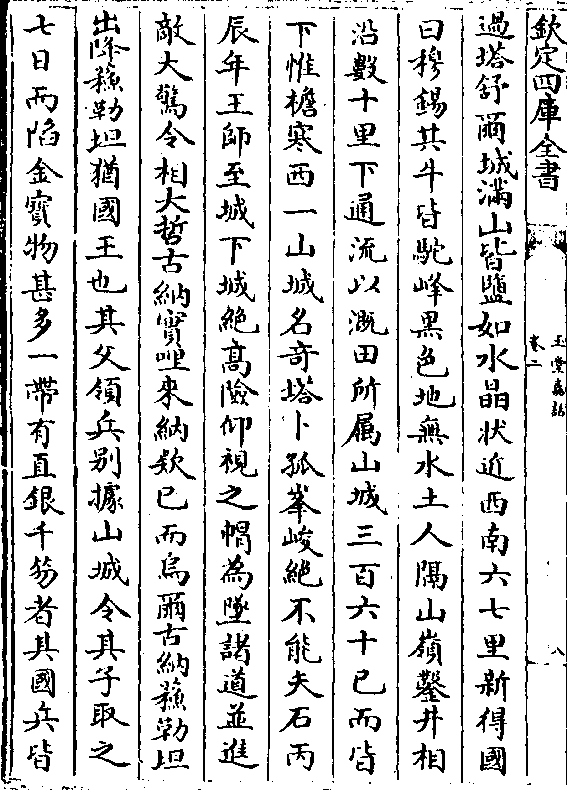 欽定四庫全書
玉堂嘉話
卷二
八
過塔舒爾城滿山皆鹽如水晶狀近西南六七里新得國
曰穆錫其牛皆駝峰黑色地無水土人隔山嶺鑿井相
沿數十里下通流以溉田所屬山城三百六十已而皆
下惟檐寒西一山城名竒塔卜孤峯峻絶不能矢石丙
辰年王師至城下城絶高險仰視之帽為墜諸道並進
敵大驚令相大哲古納實哩來納欵已而烏爾古納蘓勒坦
出降蘓勒坦猶國王也其父領兵别據山城令其子取之
七日而陷金寳物甚多一帶有直銀千笏者其國兵皆